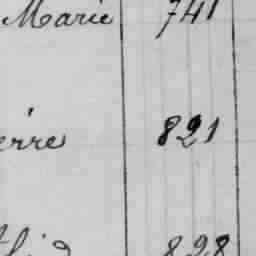 Marie 741
erre 821
828